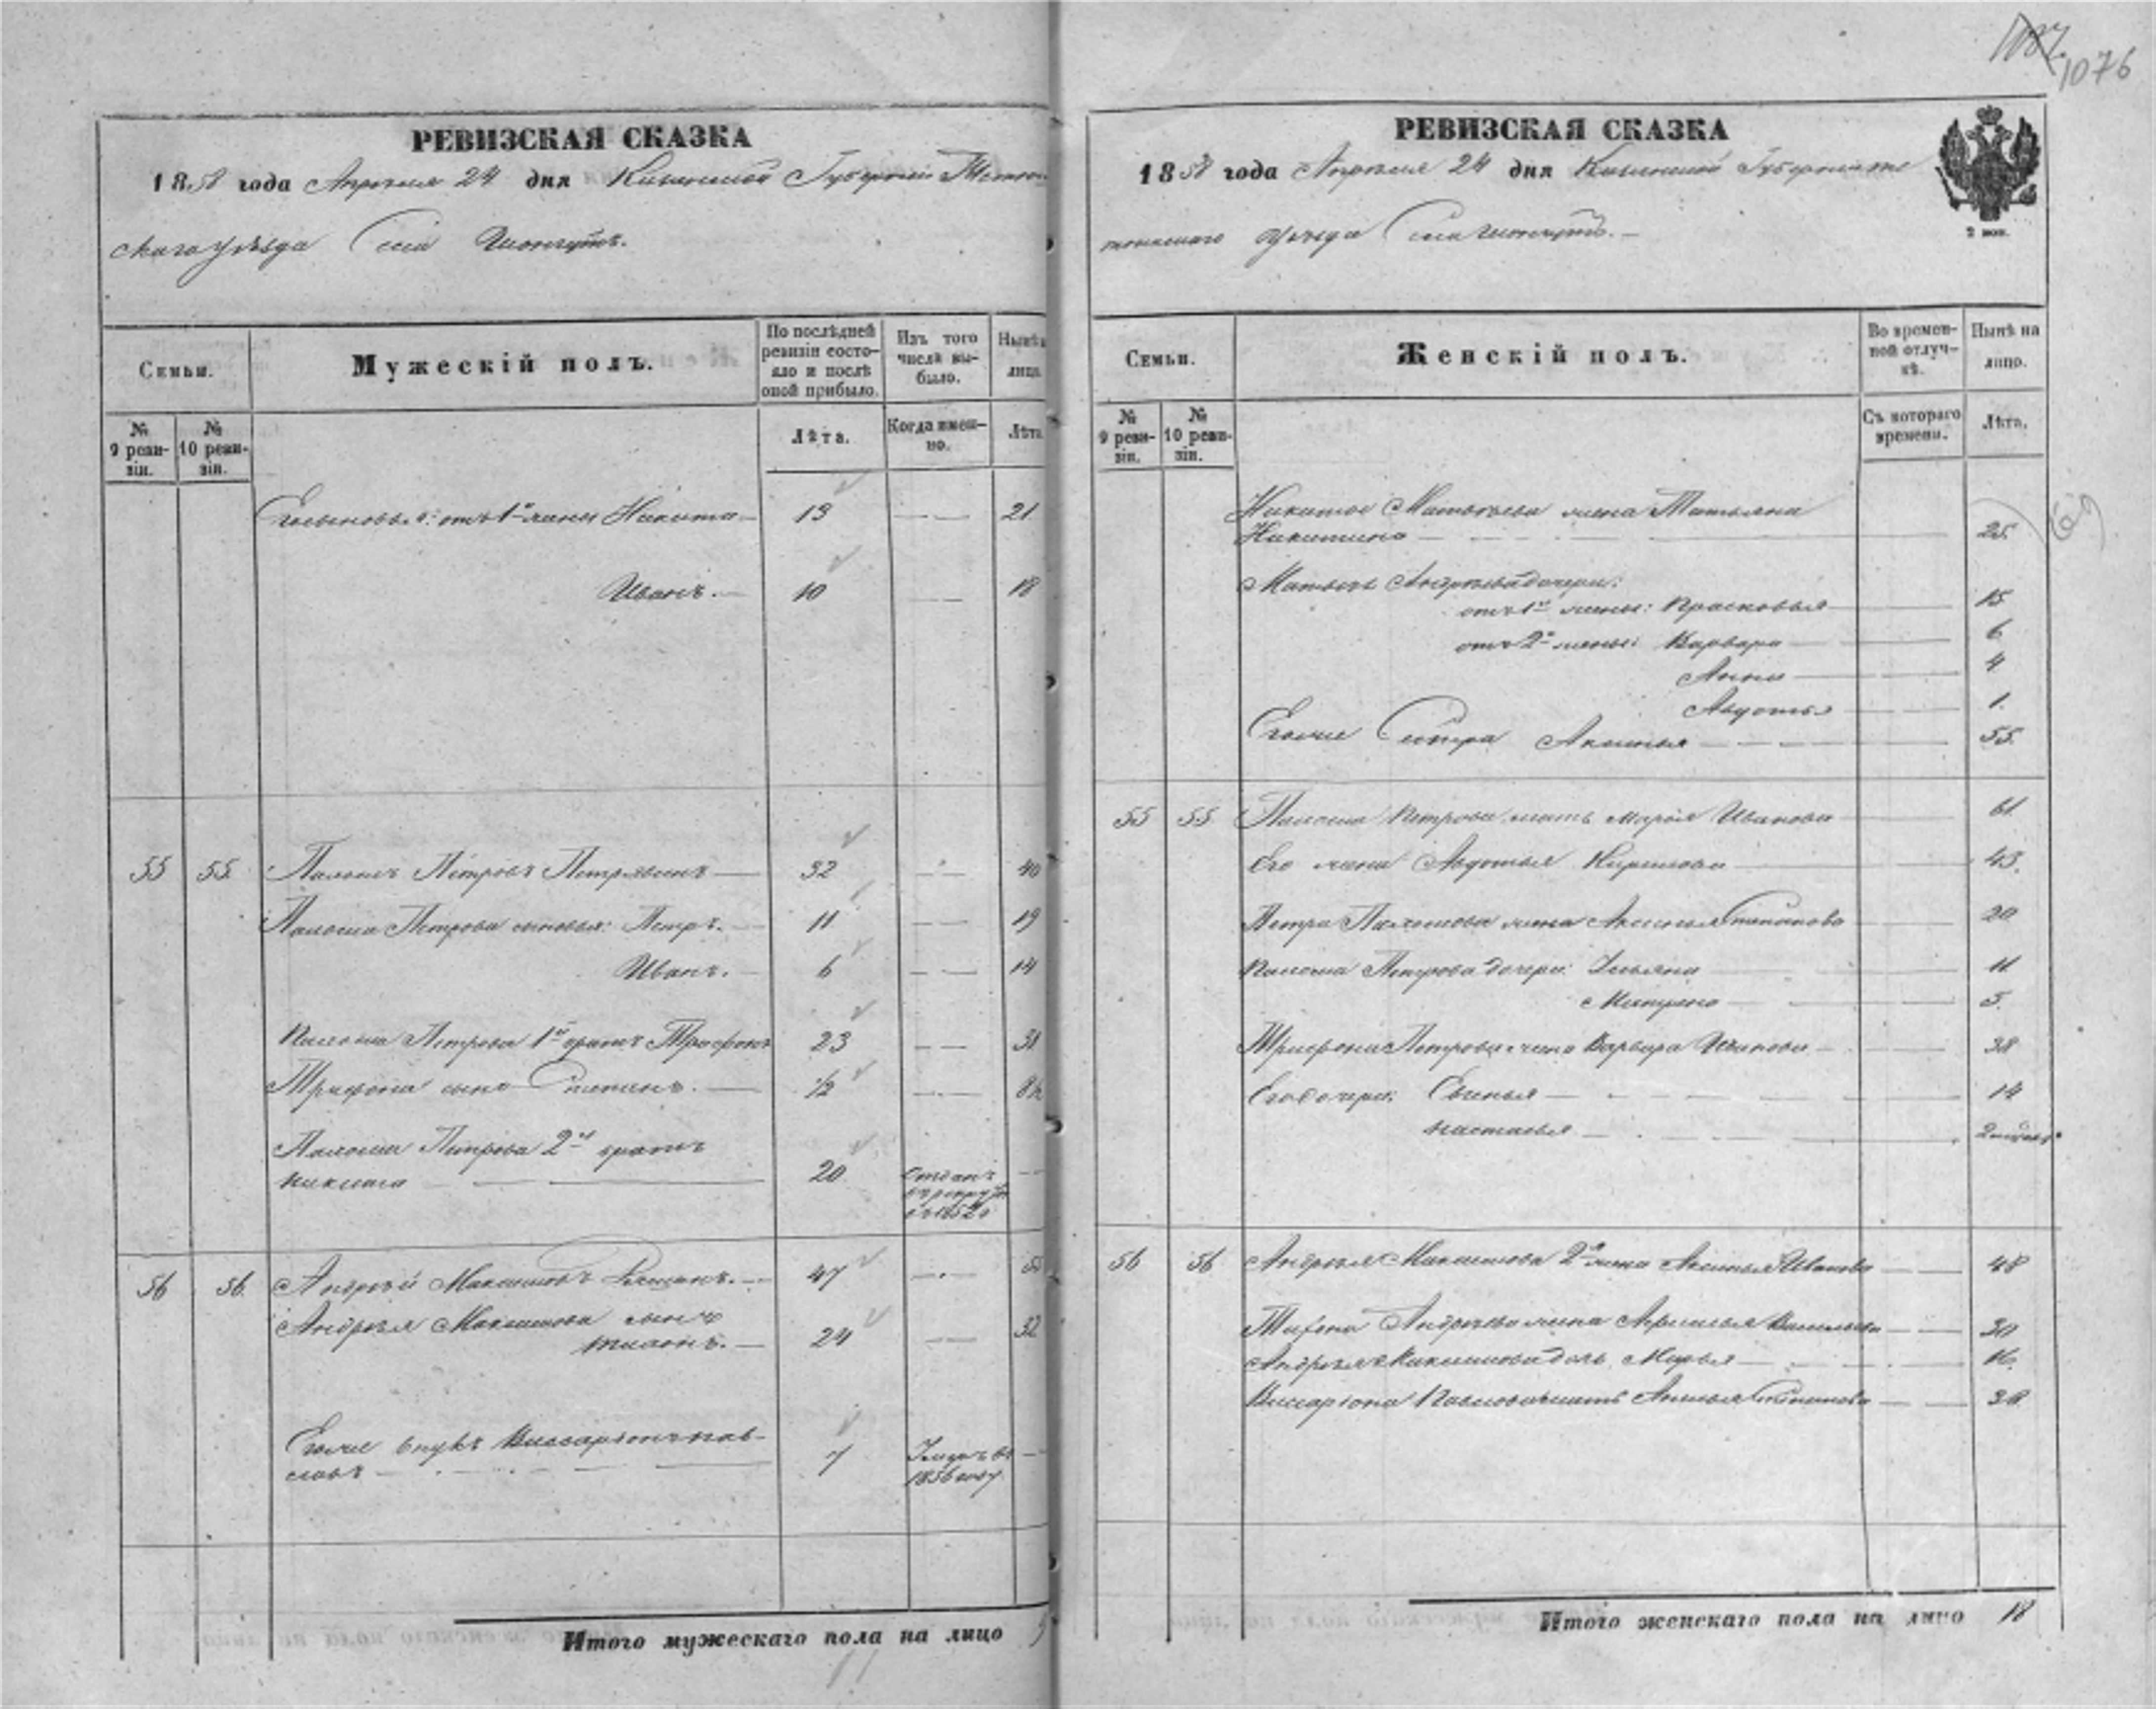 1076
РЕВИЗСКАЯ СКАЗКА
1858 года Апреля 24 дня Казанской Губернии
скаго уѣзда Села
Семьи.
Мужескій полъ.
По послѣдней ревизіи состояло и послѣ оной прибыло.
Изъ того числа выбыло.
Нынѣ лица.
№ 9 ревизіи.
№ 10 ревизіи.
Лѣта.
Когда именно.
Лѣта
Его сыновья: отъ 1й жены Никита 13 21
Иванъ. 10 18
55 55 Петровъ 32 40
Петрова сыновья: Петръ. 11 19
Иванъ. 6 14
Петрова 1й братъ Трифонъ 23 31
Трифона сынъ Степанъ. 1/2 8½
Петрова 2й братъ
Никита 20 Отданъ
въ рекруты
въ 1852
56 56 Андрей Максимовъ 47 55
Андрея Максимова сынъ
Тихонъ. 24 32
Егоже внукъ Виссаріонъ Пав-
ловъ 7 Умеръ въ
1856 году
Итого мужескаго пола на лицо 9
РЕВИЗСКАЯ СКАЗКА
1858 года Апреля 24 дня Казанской Губерніи
уѣзда Села
2 коп.
Семьи.
Женскій полъ.
Во временной отлучкѣ.
Нынѣ на лицо.
№ 9 ревизіи.
№ 10 ревизіи.
Съ котораго времени.
Лѣта.
Никиты Матвеева жена Татьяна
Никитина 25
Матвея Андреева дочери:
отъ 1й жены: Прасковья 15
отъ 2й жены: Варвара 6
Анна 4
Авдотья 1
Егоже Сестра Аксинья 55
55 55 Петрова мать Марья Иванова 61
Его жена Авдотья Кирилова 43
Петра жена Аксинья Степанова 20
Петрова дочери: Ульяна 11
Матрена 5
Трифона Петрова жена Варвара Иванова 38
Его дочери: Евгенья 14
Настасья 2 недель
56 56 Андрея Максимова 2я жена Аксинья Иванова 48
Тихона Андреева жена Васильева 30
Андрея Максимова дочь Марья 16
Виссаріона Павлова мать Степанова 38
Итого женскаго пола на лицо 18